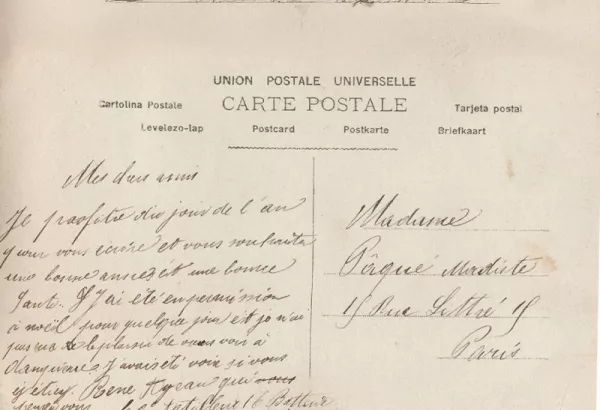 UNION POSTALE UNIVERSELLE
Cartolina Postale
CARTE POSTALE
Tarjeta postal
Levelezo-lap
Postcard
Postkarte
Briefkaart
Mes chers amis
Je profite du jour de l'an
pour vous écrire et vous souhaiter
une bonne année et une bonne
Santé. J'ai été en permission
à noël pour quelque jour et je n'ai
pas eu le plaisir de vous voir à
J'avais été voir si vous
y étiez. René qui vous
16 Batterie
Madame
Pâqué Modiste
15 Rue Littré 15
Paris